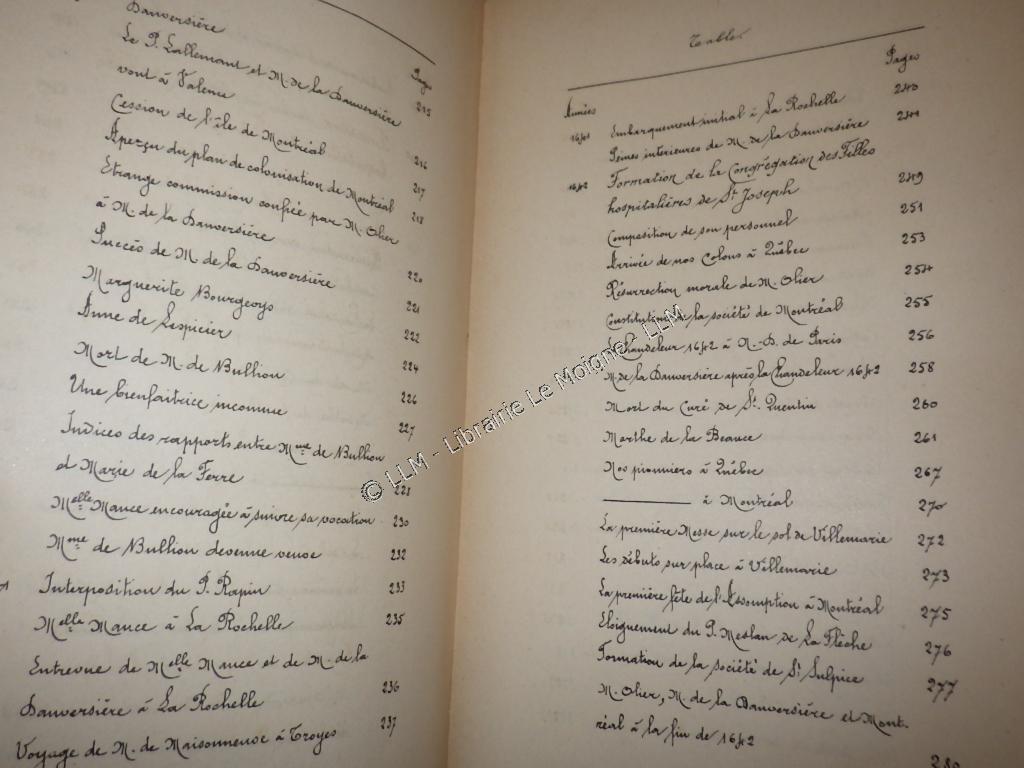 Pages
Dauversière 215
Le P. Lallemant et M. de la Dauversière
vont à Valence 216
Cession de l'île de Montréal 217
Aperçu du plan de colonisation de Montréal 218
Etrange commission confiée par M. Olier
à M. de la Dauversière 220
Succès de M. de la Dauversière 221
Marguerite Bourgeoys 222
Anne de Lespicier 224
Mort de M. de Bullion 226
Une bienfaitrice inconnue 227
Indices des rapports entre Mme de Bullion
et Marie de la Ferre 228
Melle Mance encouragée à suivre sa vocation 230
Mme de Bullion devenue veuve 232
Interposition du P. Rapin 233
Melle Mance à La Rochelle 235
Entrevue de Melle Mance et de M. de la
Dauversière à La Rochelle 236
Voyage de M. de Maisonneuve à Troyes 237
Table
Années Pages
1641 Embarquement initial à La Rochelle 240
Peines intérieures de M. de la Dauversière 241
1642 Formation de la Congrégation des Filles
hospitalières de St Joseph 249
Composition de son personnel 251
Arrivée de nos Colons à Québec 253
Résurrection morale de M. Olier 254
Constitution de la société de Montréal 255
Chandeleur 1642 à N.-D. de Paris 256
M. de la Dauversière après la Chandeleur 1642 258
Mort du Curé de St Quentin 260
Marthe de la Beauce 261
Nos pionniers à Québec 267
à Montréal 270
La première Messe sur le sol de Villemarie 272
Les débuts sur place à Villemarie 273
La première fête de l'Assomption à Montréal 275
Eloignement du P. Meslan de La Flèche 276
Formation de la société de St Sulpice 277
M. Olier, M. de la Dauversière et Mont-
réal à la fin de 1642 280
© LLM - Librairie Le Moigne - LLM